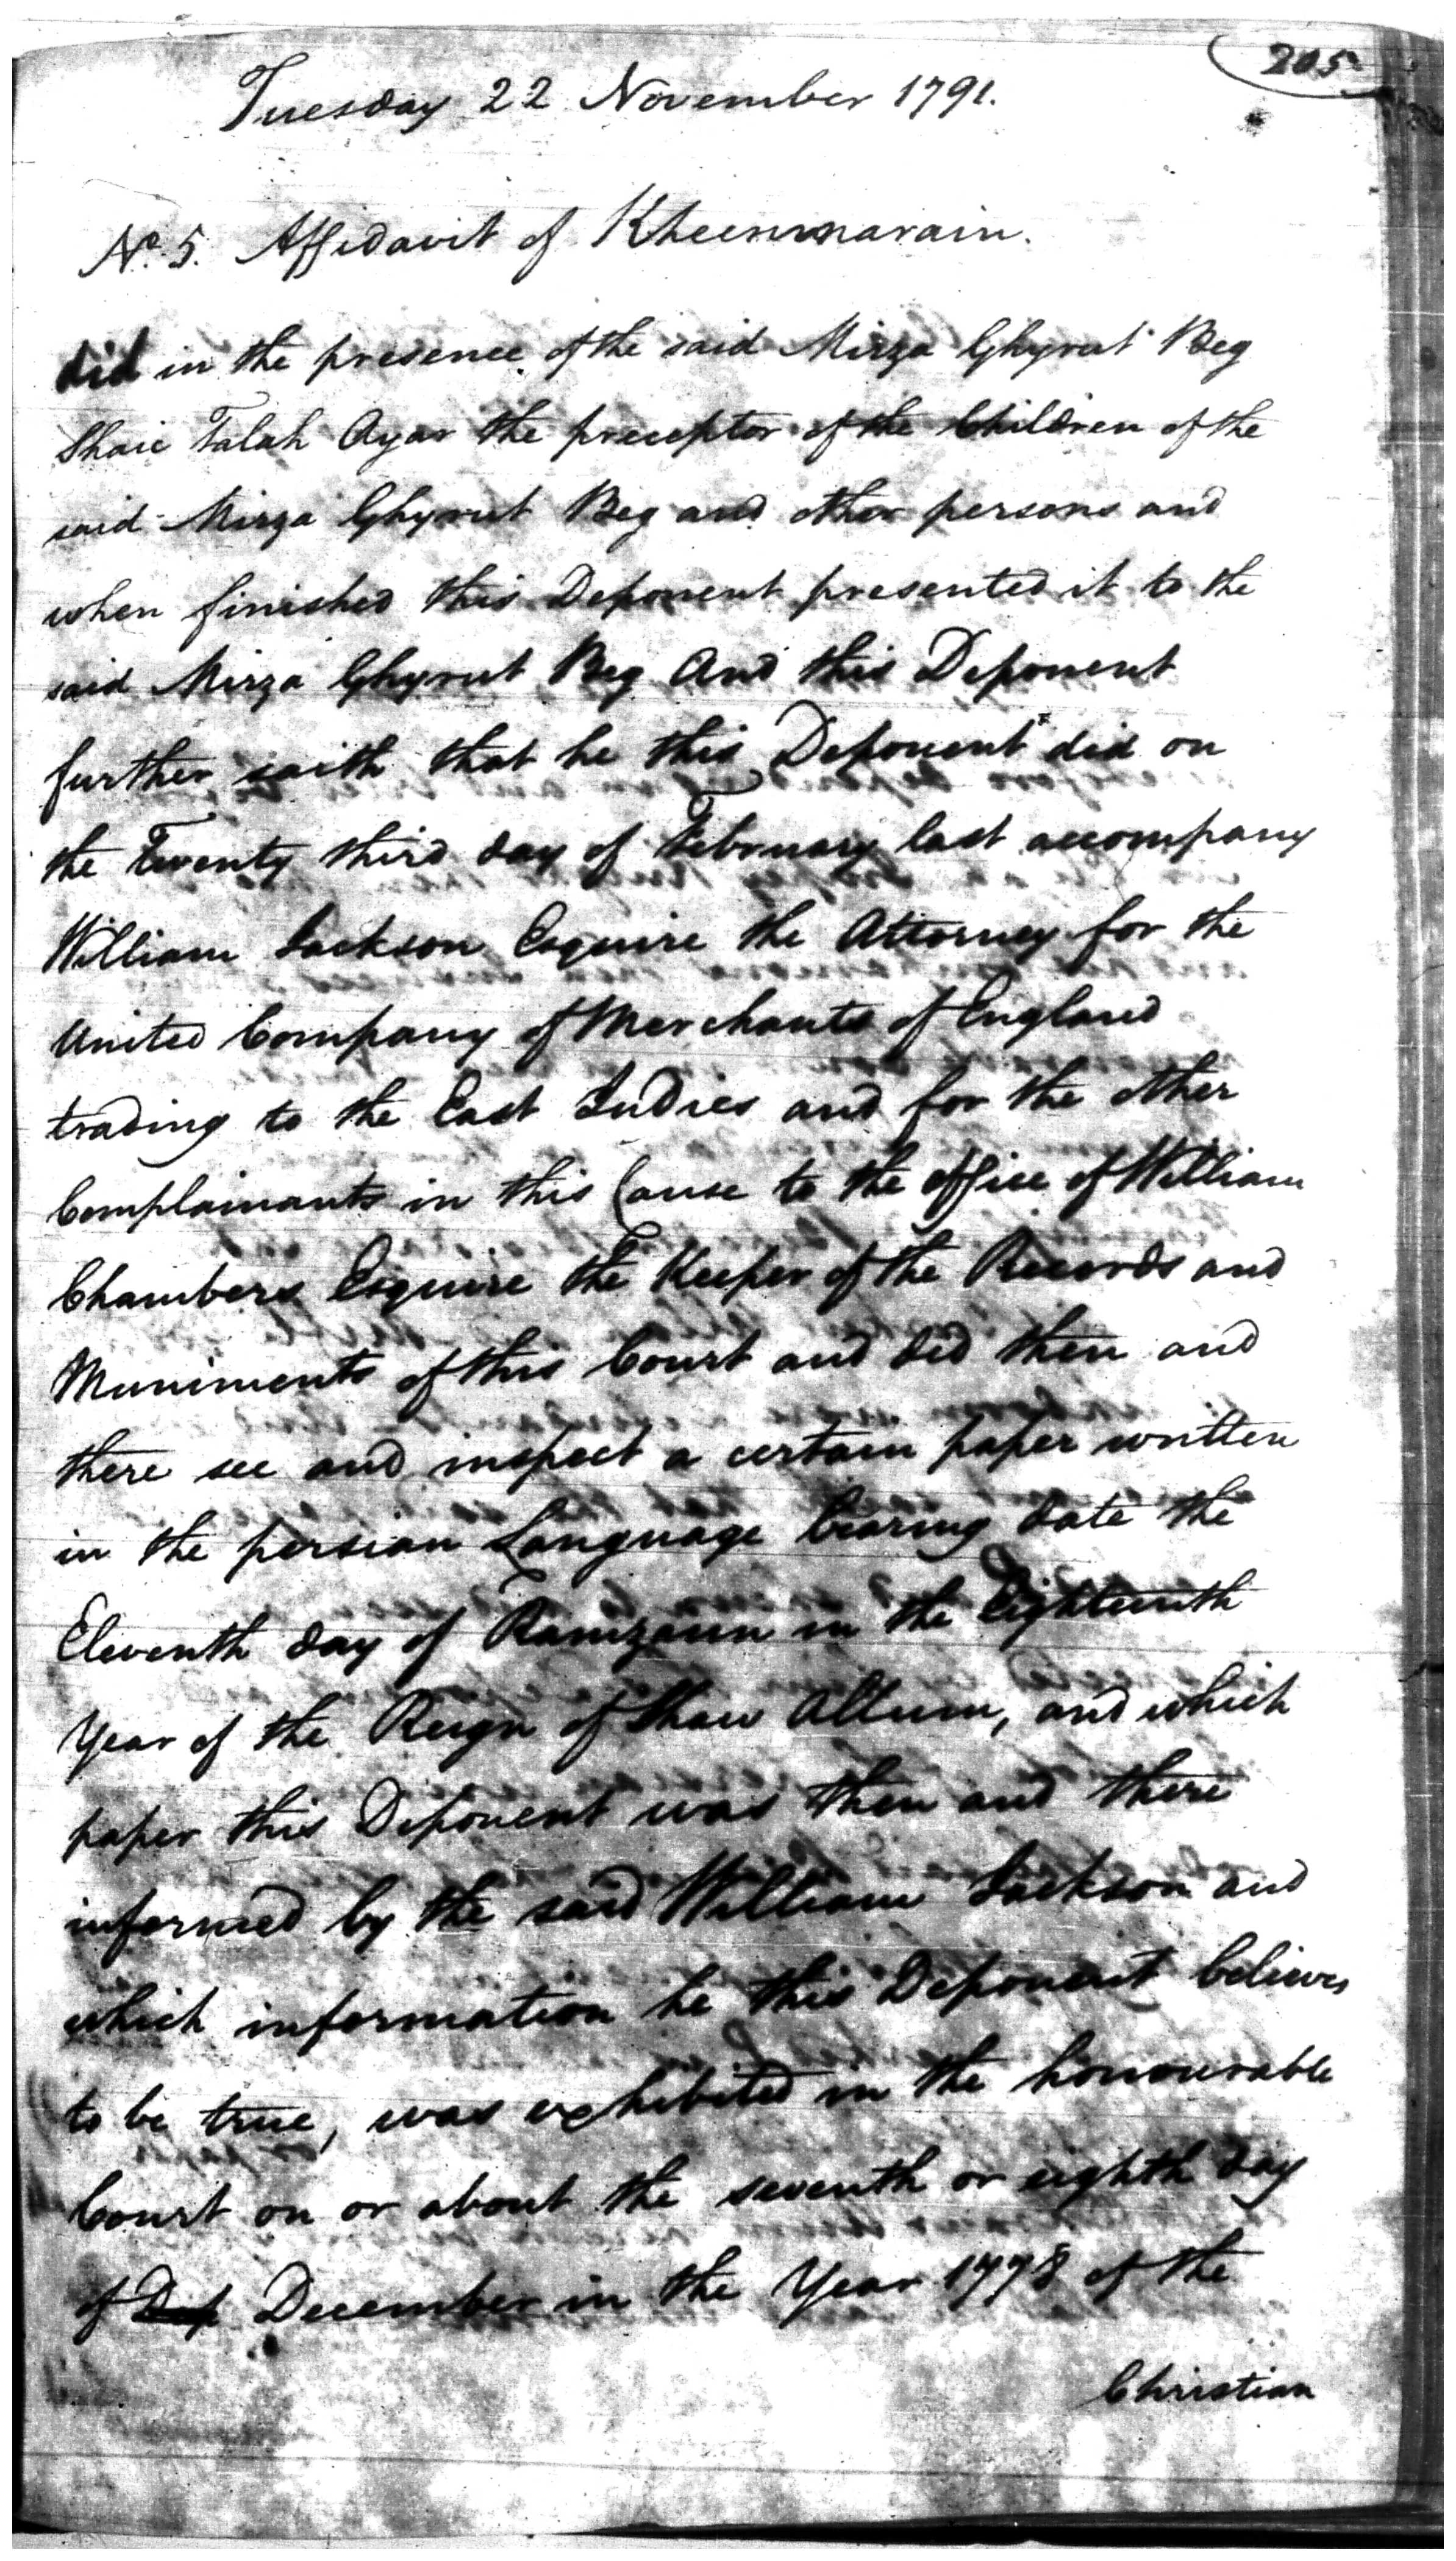 205
Tuesday 22 November 1791.
No. 5. Affidavit of Kheemnarain.
did in the presence of the said Mirza Ghyrut Beg
Shaic Talah Ayar the preceptor of the Children of the
said Mirza Ghyrut Beg and other persons and
when finished this Deponent presented it to the
said Mirza Ghyrut Beg And this Deponent
further saith that he this Deponent did on
the Twenty third day of February last accompany
William Jackson Esquire the Attorney for the
United Company of Merchants of England
trading to the East Indies and for the other
Complainants in this Cause to the office of William
Chambers Esquire the Keeper of the Records and
Muniments of this Court and did then and
there see and inspect a certain paper written
in the persian Language bearing date the
Eleventh day of Ramzaun in the Eighteenth
Year of the Reign of Shaw Allum, and which
paper this Deponent was then and there
informed by the said William Jackson and
which information he this Deponent believes
to be true, was exhibited in the honourable
Court on or about the seventh or eighth day
of Dep December in the Year 1778 of the
Christian